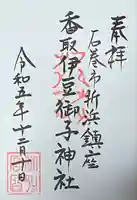 奉拝
石巻市折浜鎮座
香取伊豆御子神社
令和五年十二月十日